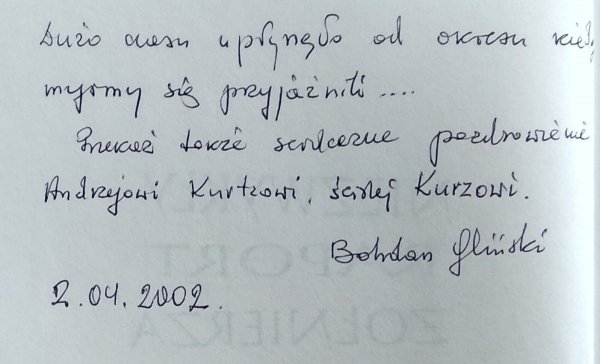 Dużo czasu upłynęło od okresu kiedy
myśmy się przyjaźnili ....
Przekaż także serdeczne pozdrowienie
Andrzejowi Kurtzowi, ściślej Kurzowi.
Bohdan Gliński
2.04.2002.
NIEZWYKŁY
RAPORT
ŻOŁNIERZA